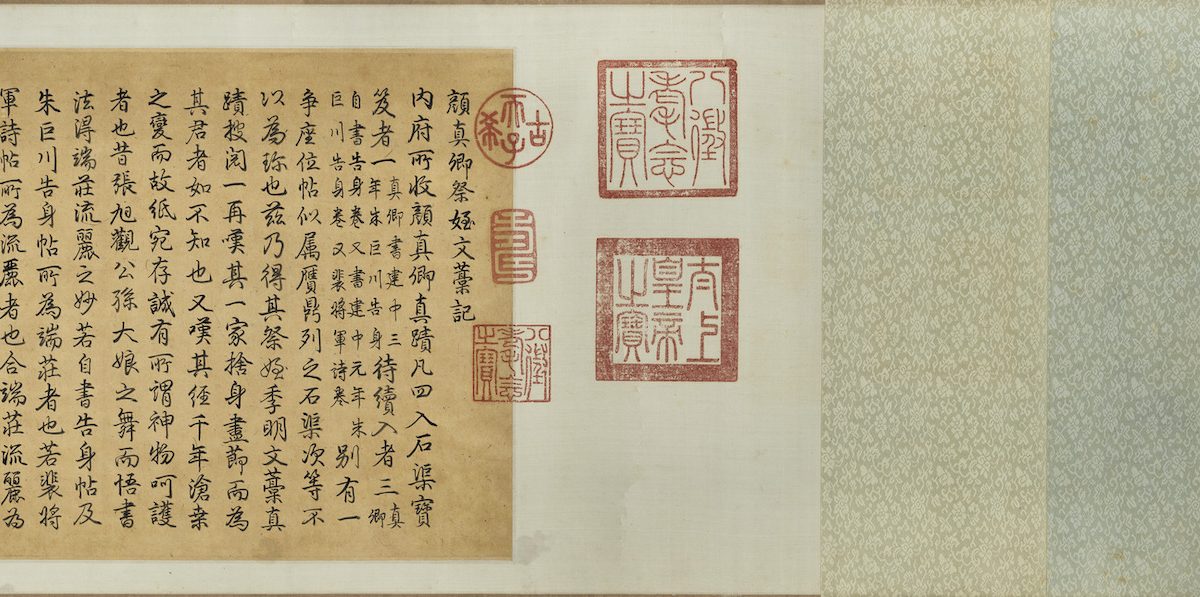 八徵耄念之寶
太上皇帝之寶
古希天子
壽
八徵耄念之寶
顏真卿祭姪文藁記
內府所收顏真卿真蹟凡四入石渠寶
笈者一真卿書建中三年朱巨川告身待續入者三真卿
自書告身卷又書建中元年朱巨川告身卷又裴將軍詩卷别有一
爭座位帖似属贗鼎列之石渠次等不
以為珎也茲乃得其祭姪季明文藁真
蹟披閱一再嘆其一家捨身盡節而為
其君者如不知也又嘆其經千年滄桒
之變而故紙宛存誠有所謂神物呵護
者也昔張旭觀公孫大娘之舞而悟書
法淂端莊流麗之妙若自書告身帖及
朱巨川告身帖所為端莊者也若裴將
軍詩帖所為流麗者也合端莊流麗為